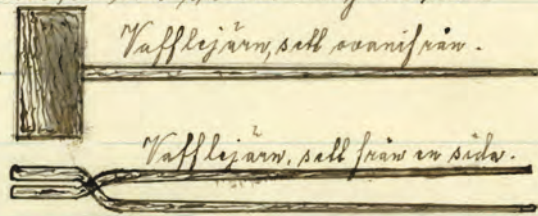 Vafflejärn, sett ovanifrån.
Vafflejärn, sett från en sida.